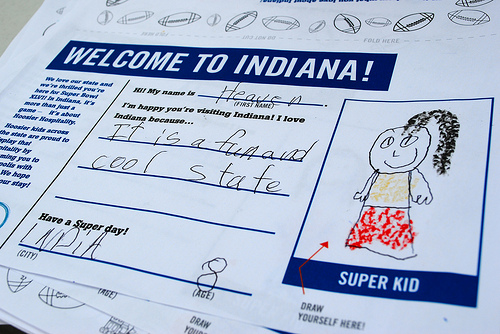 PULL HERE
FOLD HERE
WELCOME TO INDIANA!
We love our state and
we're thrilled you're
here for Super Bowl
XLVII in Indiana. It's
more than just a
game it's about
Hoosier Hospitality.
Hoosier kids across
the state are proud to
play that
pitality by
ming you to
polis with
We hope
ur stay!
Hi! My name is Heaven.
(FIRST NAME)
I'm happy you're visiting Indiana! I love
Indiana because...
It is a fun and
cool state
Have a Super day!
INDIA 8
(CITY) (AGE)
SUPER KID
DRAW
YOURSELF HERE!
(AGE)
(AGE)
DRAW